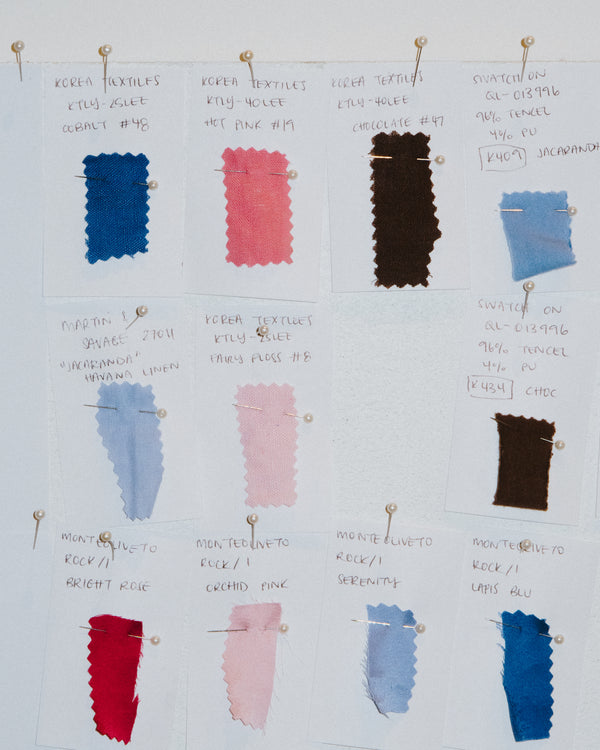 KOREA TEXTILES
KTLY-25LEE
COBALT #48
KOREA TEXTILES
KTLY-40LEE
HOT PINK #19
KOREA TEXTILES
KTLY-40LEE
CHOCOLATE #47
SWATCH ON
QL-013996
96% TENCEL
4% PU
K409 JACARANDA
MARTIN &
SAVAGE 27011
"JACARANDA"
HAVANA LINEN
KOREA TEXTILES
KTLY-25LEE
FAIRY FLOSS #8
SWATCH ON
QL-013996
96% TENCEL
4% PU
K434 CHOC
MONTEOLIVETO
ROCK/1
BRIGHT ROSE
MONTEOLIVETO
ROCK/1
ORCHID PINK
MONTEOLIVETO
ROCK/1
SERENITY
MONTEOLIVETO
ROCK/1
LAPIS BLU